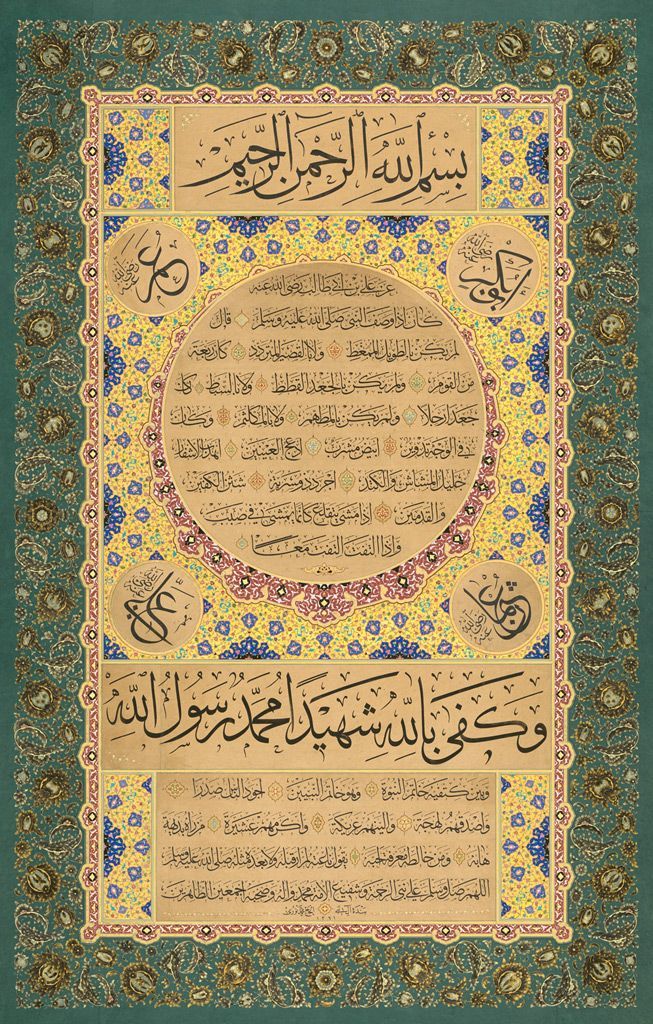 بسم الله الرحمن الرحيم
ابو بكر رضي الله عنه
عمر رضي الله عنه
عن علي بن ابي طالب رضي الله عنه
كان اذا وصف النبي صلى الله عليه وسلم قال
لم يكن بالطويل الممغط ولا بالقصير المتردد كان ربعة
من القوم ولم يكن بالجعد القطط ولا بالسبط كان
جعدا رجلا ولم يكن بالمطهم ولا بالمكلثم وكان
في الوجه تدوير ابيض مشرب ادعج العينين اهدب الاشفار
جليل المشاش والكتد اجرد ذو مسربة شثن الكفين
والقدمين اذا مشى يتقلع كانما يمشي في صبب
واذا التفت التفت معا
عثمان رضي الله عنه
علي رضي الله عنه
وكفى بالله شهيدا محمد رسول الله
وبين كتفيه خاتم النبوة وهو خاتم النبيين اجود الناس صدرا
واصدقهم لهجة والينهم عريكة واكرمهم عشيرة من راه بديهة
هابه ومن خالطه معرفة احبه يقول ناعته لم ار قبله ولا بعده مثله صلى الله عليه وسلم
اللهم صل وسلم على نبي الرحمة وشفيع الامة محمد واله وصحبه اجمعين الطاهرين